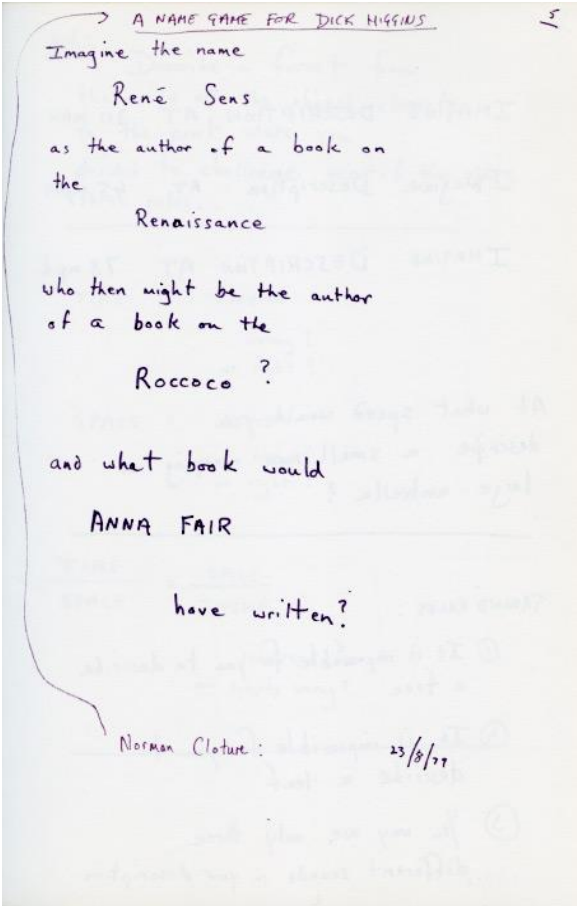 A NAME GAME FOR DICK HIGGINS
5
Imagine the name
René Sens
as the author of a book on
the
Renaissance
who then might be the author
of a book on the
Roccoco ?
and what book would
ANNA FAIR
have written?
Norman Cloture :
23/8/79